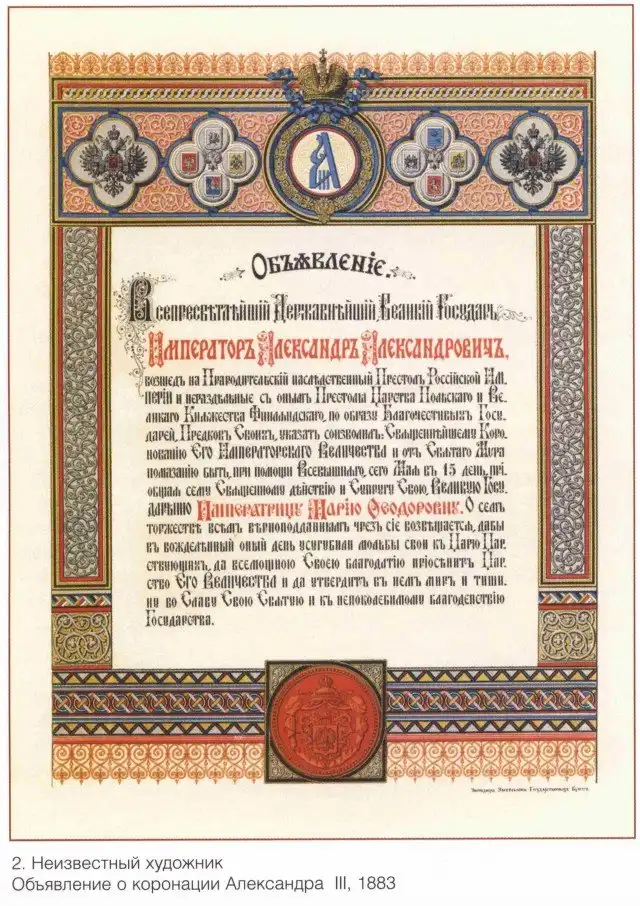 Объѧвленіе.
Всепресвѣтлѣйшій Державнѣйшій Великій Государь
Императоръ Александръ Александровичъ,
возшедъ на Прародительскій наслѣдственный Престолъ Россійской Им-
періи и нераздѣльные съ онымъ Престолы Царства Польскаго и Ве-
ликаго Княжества Финляндскаго, по образу Благочестивыхъ Госу-
дарей, Предковъ Своихъ, указать соизволилъ: Священнѣйшему Коро-
нованію Его Императорскаго Величества и отъ Святаго Мѵра
помазанію быть, при помощи Всевышняго, сего Мая въ 15 день, прі-
общая сему Священному дѣйствію и Супругу Свою, Великую Госу-
дарыню Императрицу Марію Феодоровну. О семъ
торжествѣ всѣмъ вѣрноподданнымъ чрезъ сіе возвѣщается, дабы
въ вожделѣнный оный день усугубили мольбы свои къ Царю Цар-
ствующихъ, да всемощною Своею благодатію пріосѣнитъ Цар-
ство Его Величества и да утвердитъ въ немъ миръ и тиши-
ну во Славу Свою Святую и къ непоколебимому благоденствію
Государства.
Экспедиція Заготовленія Государственныхъ Бумагъ.
2. Неизвестный художник
Объявление о коронации Александра III, 1883